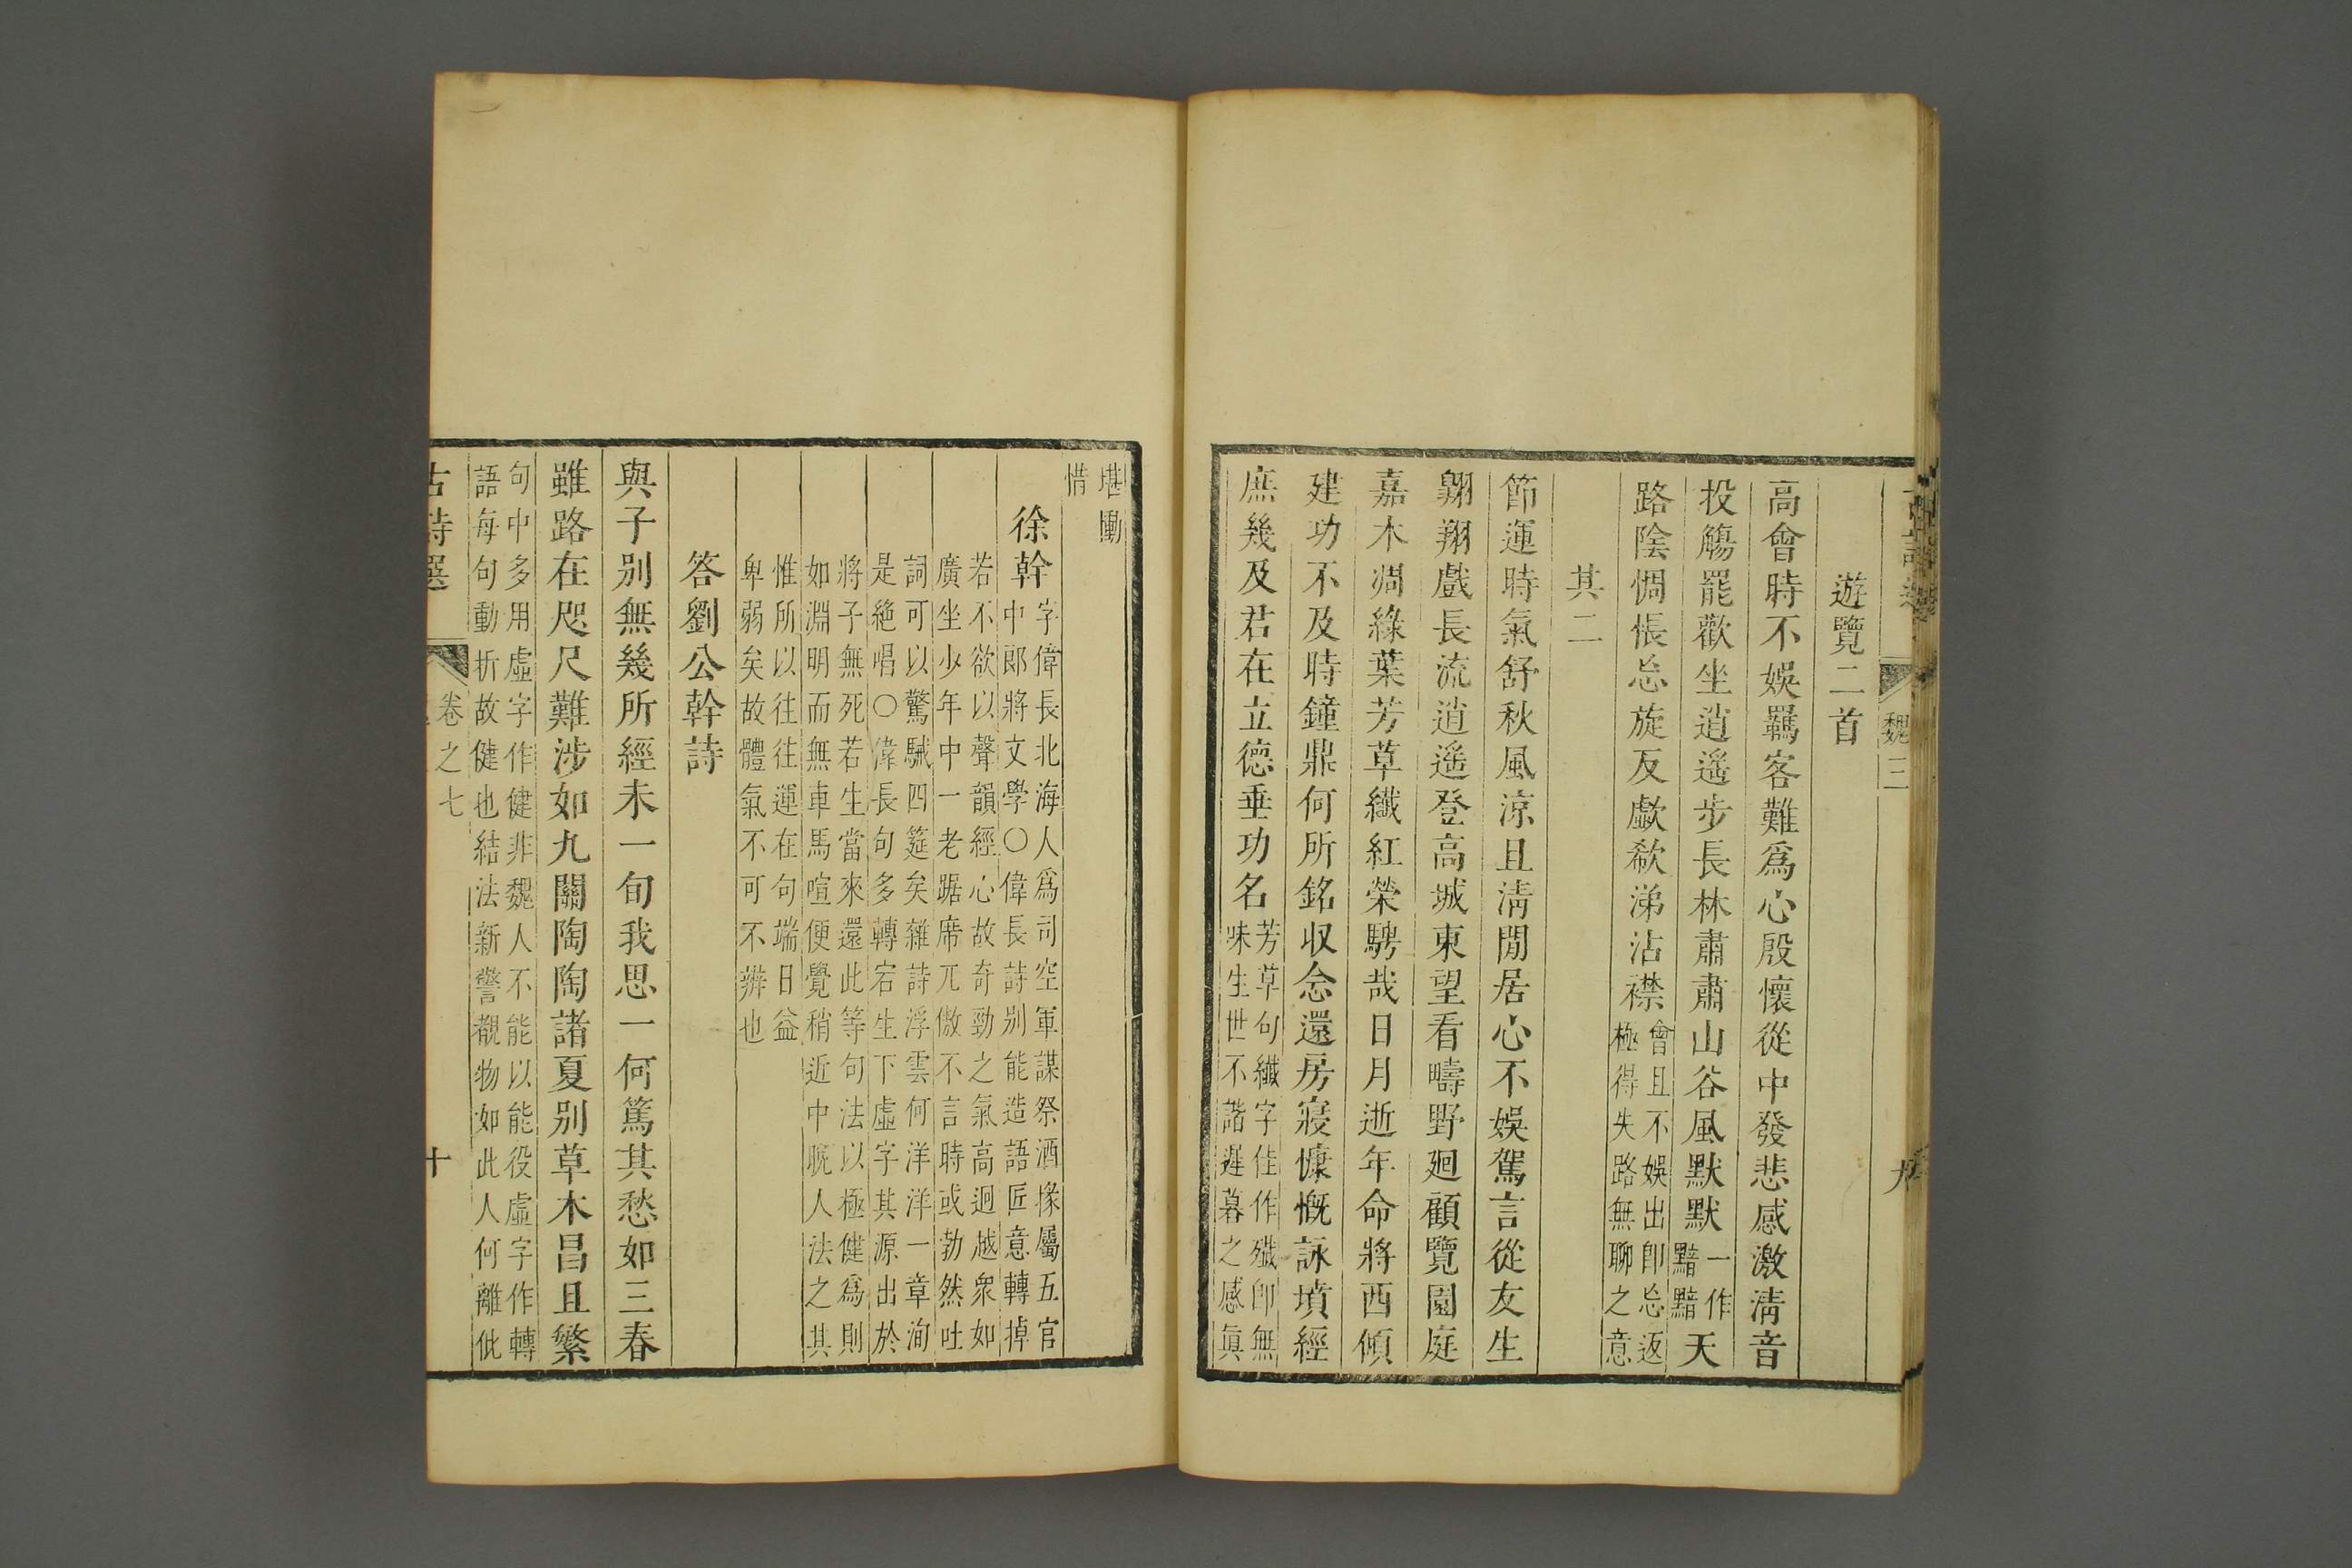 古詩選 魏三 九
遊覽二首
高會時不娛羈客難爲心殷懷從中發悲感激淸音
投觴罷歡坐逍遙步長林肅肅山谷風默默一作黯黯天
路陰惆悵忘旋反歔欷涕沾襟會且不娛出卽忘返
極得失路無聊之意
其二
節運時氣舒秋風涼且淸閒居心不娛駕言從友生
翺翔戲長流逍遙登高城東望看疇野廻顧覽園庭
嘉木凋綠葉芳草纖紅榮騁哉日月逝年命將西傾
建功不及時鐘鼎何所銘収念還房寢慷慨詠墳經
庶幾及君在立德垂功名芳草句纖字佳作殱卽無
味生世不諧遲暮之感眞
堪慟
惜
徐幹字偉長北海人爲司空軍謀祭酒掾屬五官
中郞將文學〇偉長詩別能造語匠意轉掉
若不欲以聲韻經心故奇勁之氣高迥越衆如
廣坐少年中一老踞席兀傲不言時或勃然吐
詞可以驚駴四筵矣雜詩浮雲何洋洋一章洵
是絶唱〇偉長句多轉宕生下虛字其源出於
將子無死若生當來還此等句法以極健爲則
如淵明而無車馬喧便覺稍近中晩人法之其
惟所以往往運在句端日益
卑弱矣故體氣不可不辨也
答劉公幹詩
與子別無幾所經未一旬我思一何篤其愁如三春
雖路在咫尺難涉如九關陶陶諸夏別草木昌且繁
句中多用虛字作健非魏人不能以能役虛字作轉
語每句動折故健也結法新警觀物如此人何離仳
古詩選 卷之七 十